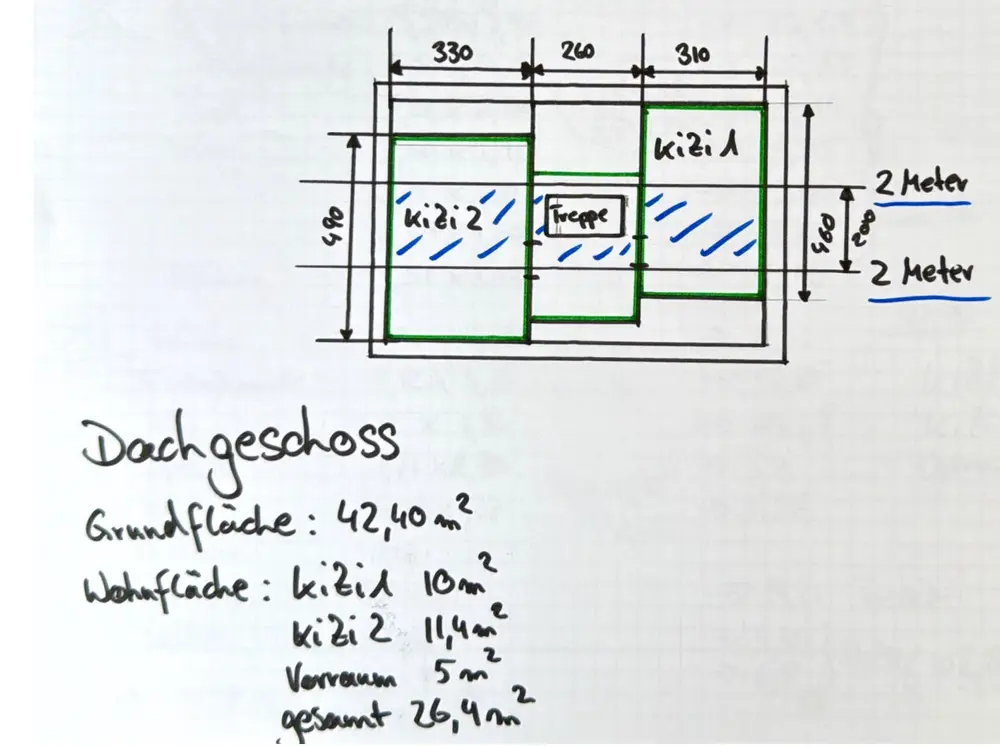 330 260 310
KiZi 1
2 Meter
490 KiZi 2 Treppe 460 200
2 Meter
Dachgeschoss
Grundfläche: 42,40 m²
Wohnfläche: KiZi 1 10 m²
KiZi 2 11,4 m²
Vorraum 5 m²
gesamt 26,4 m²